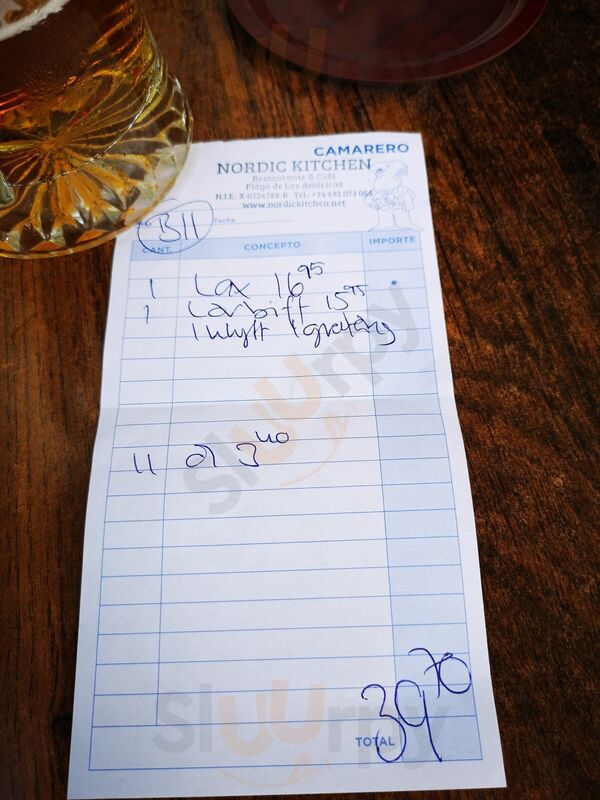 CAMARERO
NORDIC KITCHEN
Restaurante & Café
Playa de Los Américas
N.I.E.: X-0726788-R Tel.: +34 681 073 066
www.nordickitchen.net
B11 Fecha
CANT. CONCEPTO IMPORTE
1 Lax 16 95
1 Lövbiff 15 95
1 1
11 öl 3 40
TOTAL 39 70
SluUrpy
SluUrpy
SluUrpy